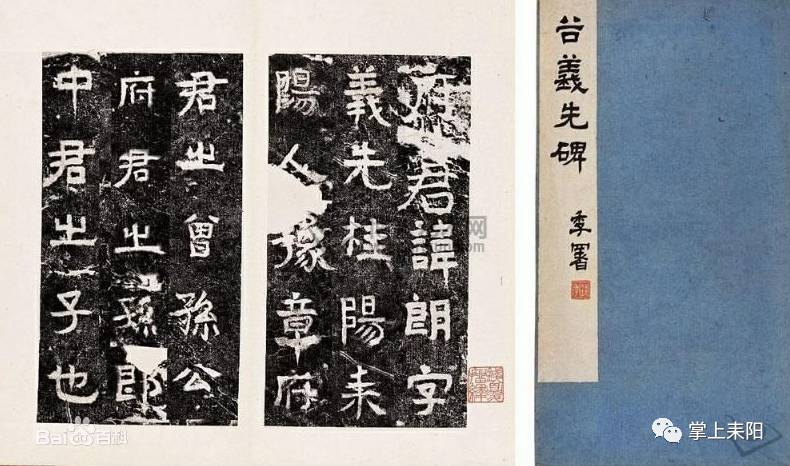 谷義先碑
季署
府君諱朗字
義先桂陽耒
陽人豫章府
君之曾孫公
府君之孫郎
中君之子也
Bai百科
掌上耒阳